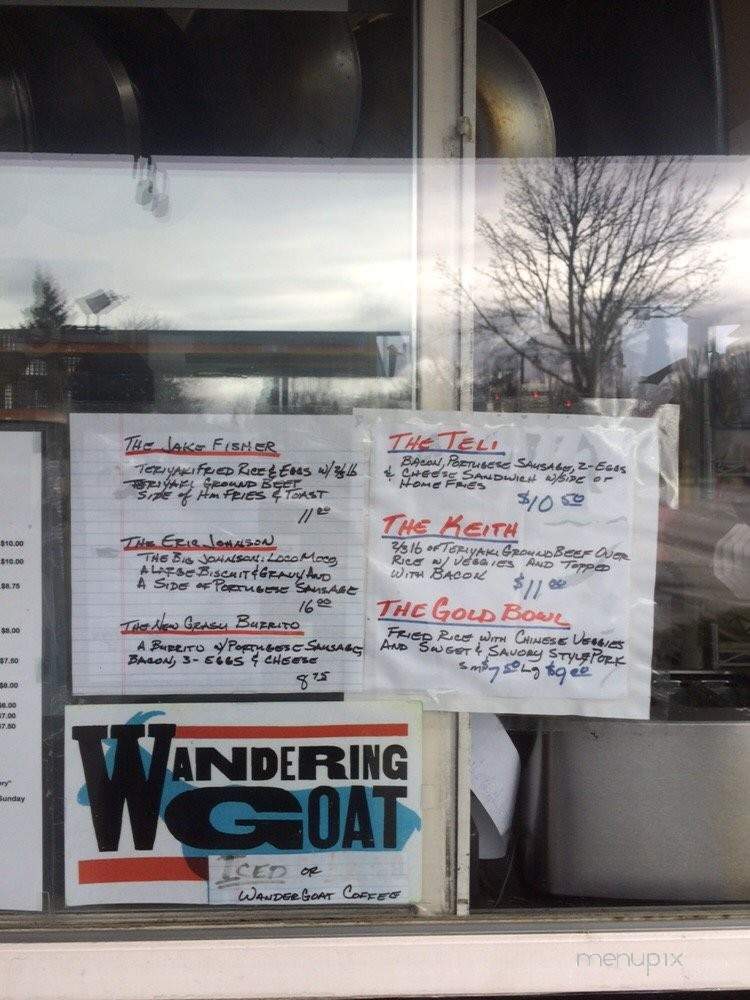 THE JAKE FISHER
TERIYAKI FRIED RICE & EGGS w/ 2/3 lb
TERIYAKI GROUND BEEF
SIDE OF HM FRIES & TOAST
11 00
THE ERIC JOHNSON
THE BIG JOHNSON: LOCO MOCO
A LARGE BISCUIT & GRAVY AND
A SIDE OF PORTUGESE SAUSAGE
16 00
THE NEW GRASU BURRITO
A BURRITO W/ PORTUGESE SAUSAGE,
BACON, 3-EGGS & CHEESE
8 75
THE TELI
BACON, PORTUGESE SAUSAGE, 2-EGGS
& CHEESE SANDWICH W/SIDE OF
HOME FRIES
$10 50
THE KEITH
2/3 lb OF TERIYAKI GROUND BEEF OVER
RICE W/ VEGGIES AND TOPPED
WITH BACON
$11 00
THE GOLD BOWL
FRIED RICE WITH CHINESE VEGGIES
AND SWEET & SAVORY STYLE PORK
Sm $7 50 Lg $9 00
$10.00
$10.00
$8.75
$5.00
$7.50
$9.00
$6.00
$7.00
$7.50
Sunday
WANDERING
GOAT
ICED OR
WANDERGOAT COFFEE
menupix